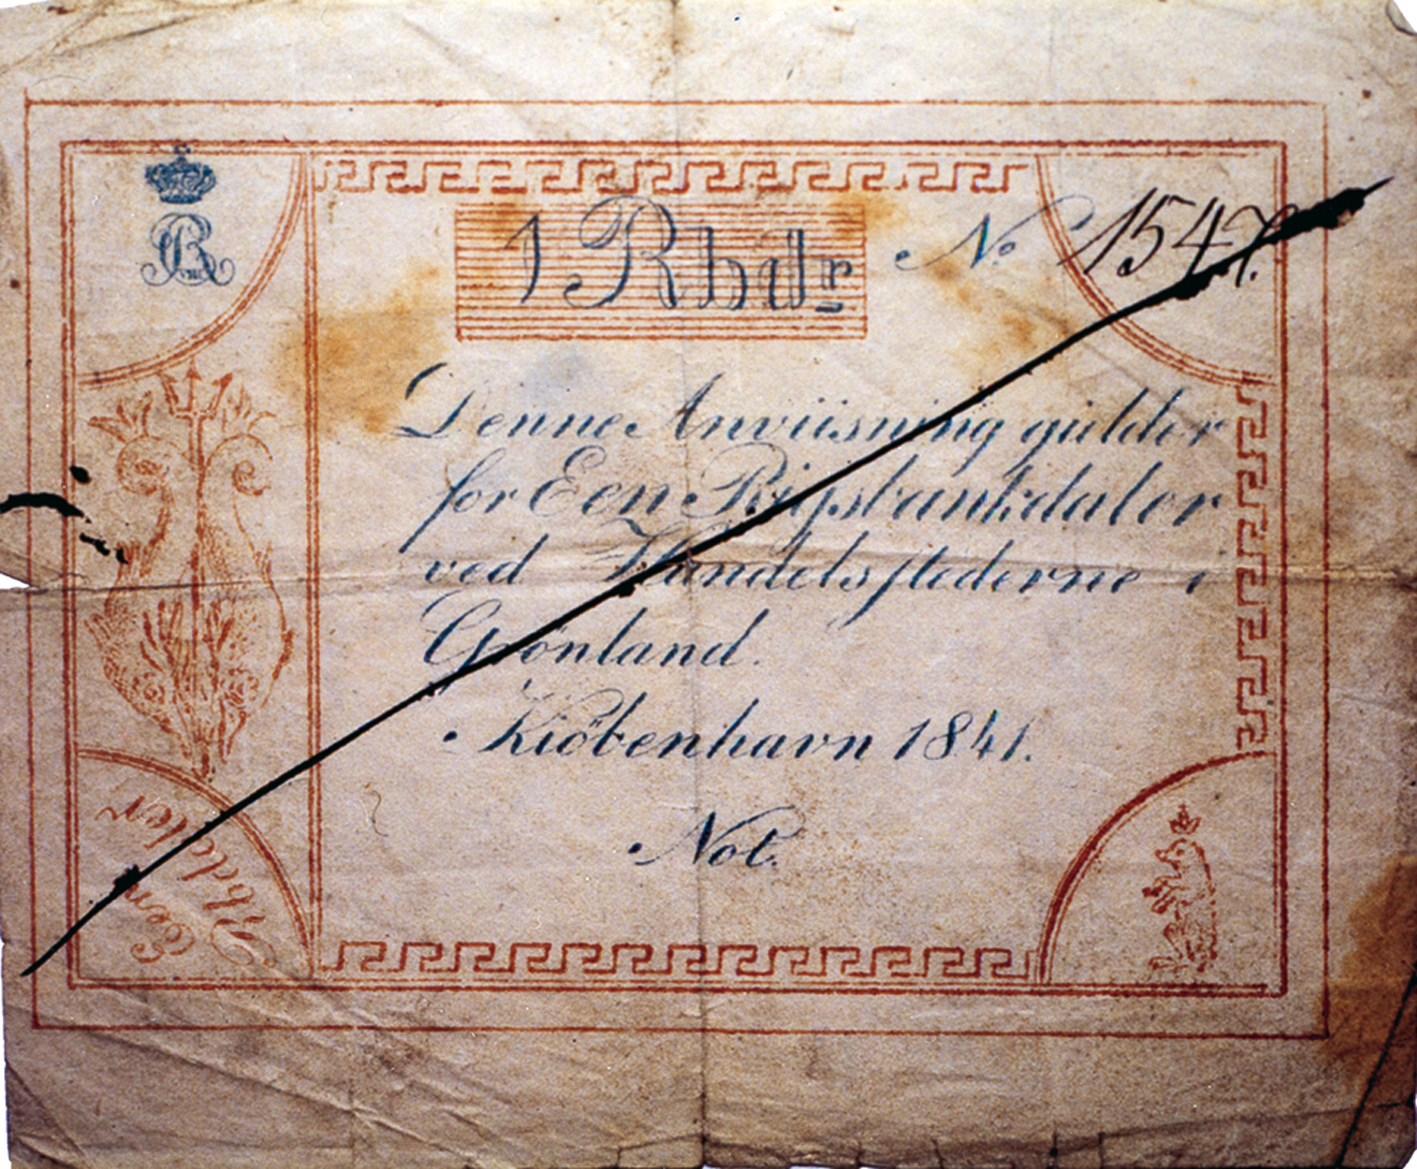 1 Rbdr No 1547.
Denne Anviisning gielder
for Een Rigsbankdaler
ved Handelsstederne i
Grønland.
Kiöbenhavn 1841.
Not.
Een
Rbdaler